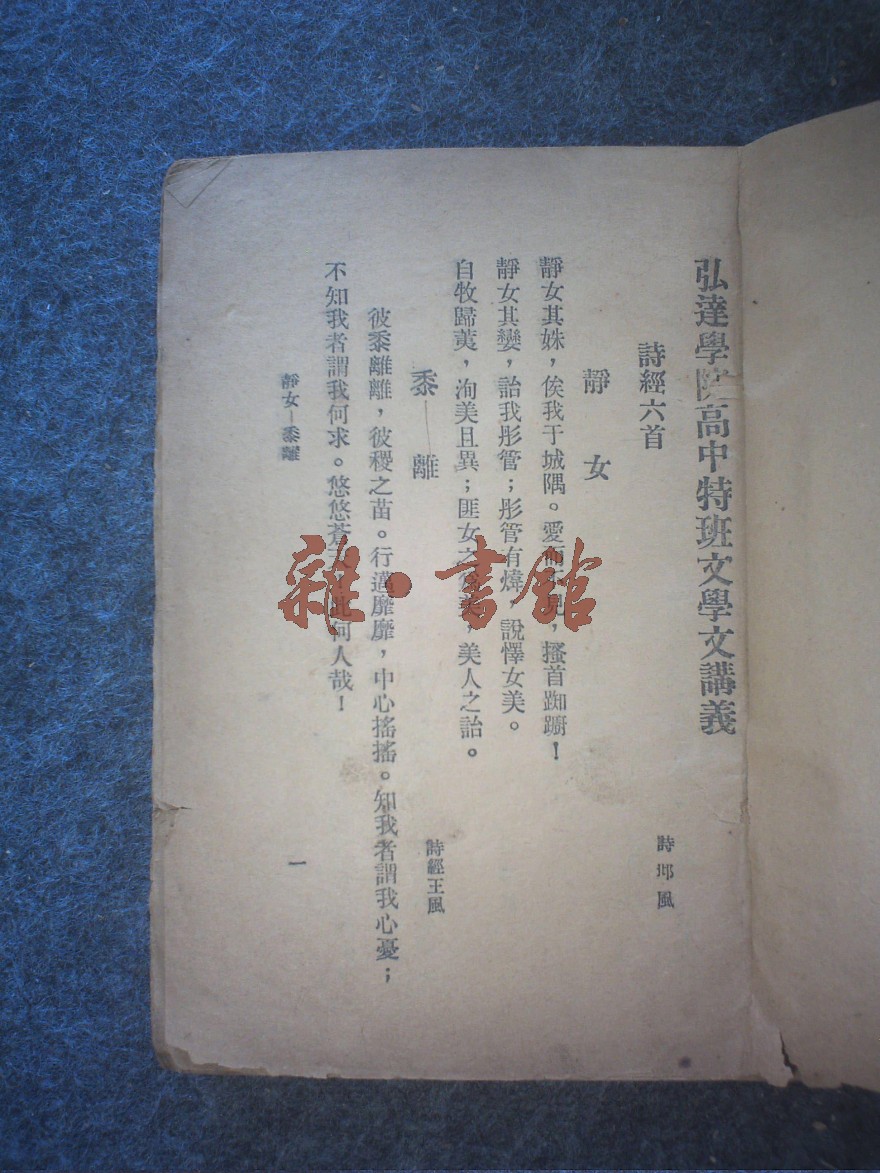 弘達學院高中特班文學文講義
詩經六首
詩邶風
靜女
靜女其姝，俟我于城隅。愛而不見，搔首踟躕！
靜女其孌，詒我彤管；彤管有煒，說懌女美。
自牧歸荑，洵美且異；匪女之為美，美人之詒。
黍——離
詩經王風
彼黍離離，彼稷之苗。行邁靡靡，中心搖搖。知我者謂我心憂；
不知我者謂我何求。悠悠蒼天！此何人哉！
靜女—黍離
一
雜·書館